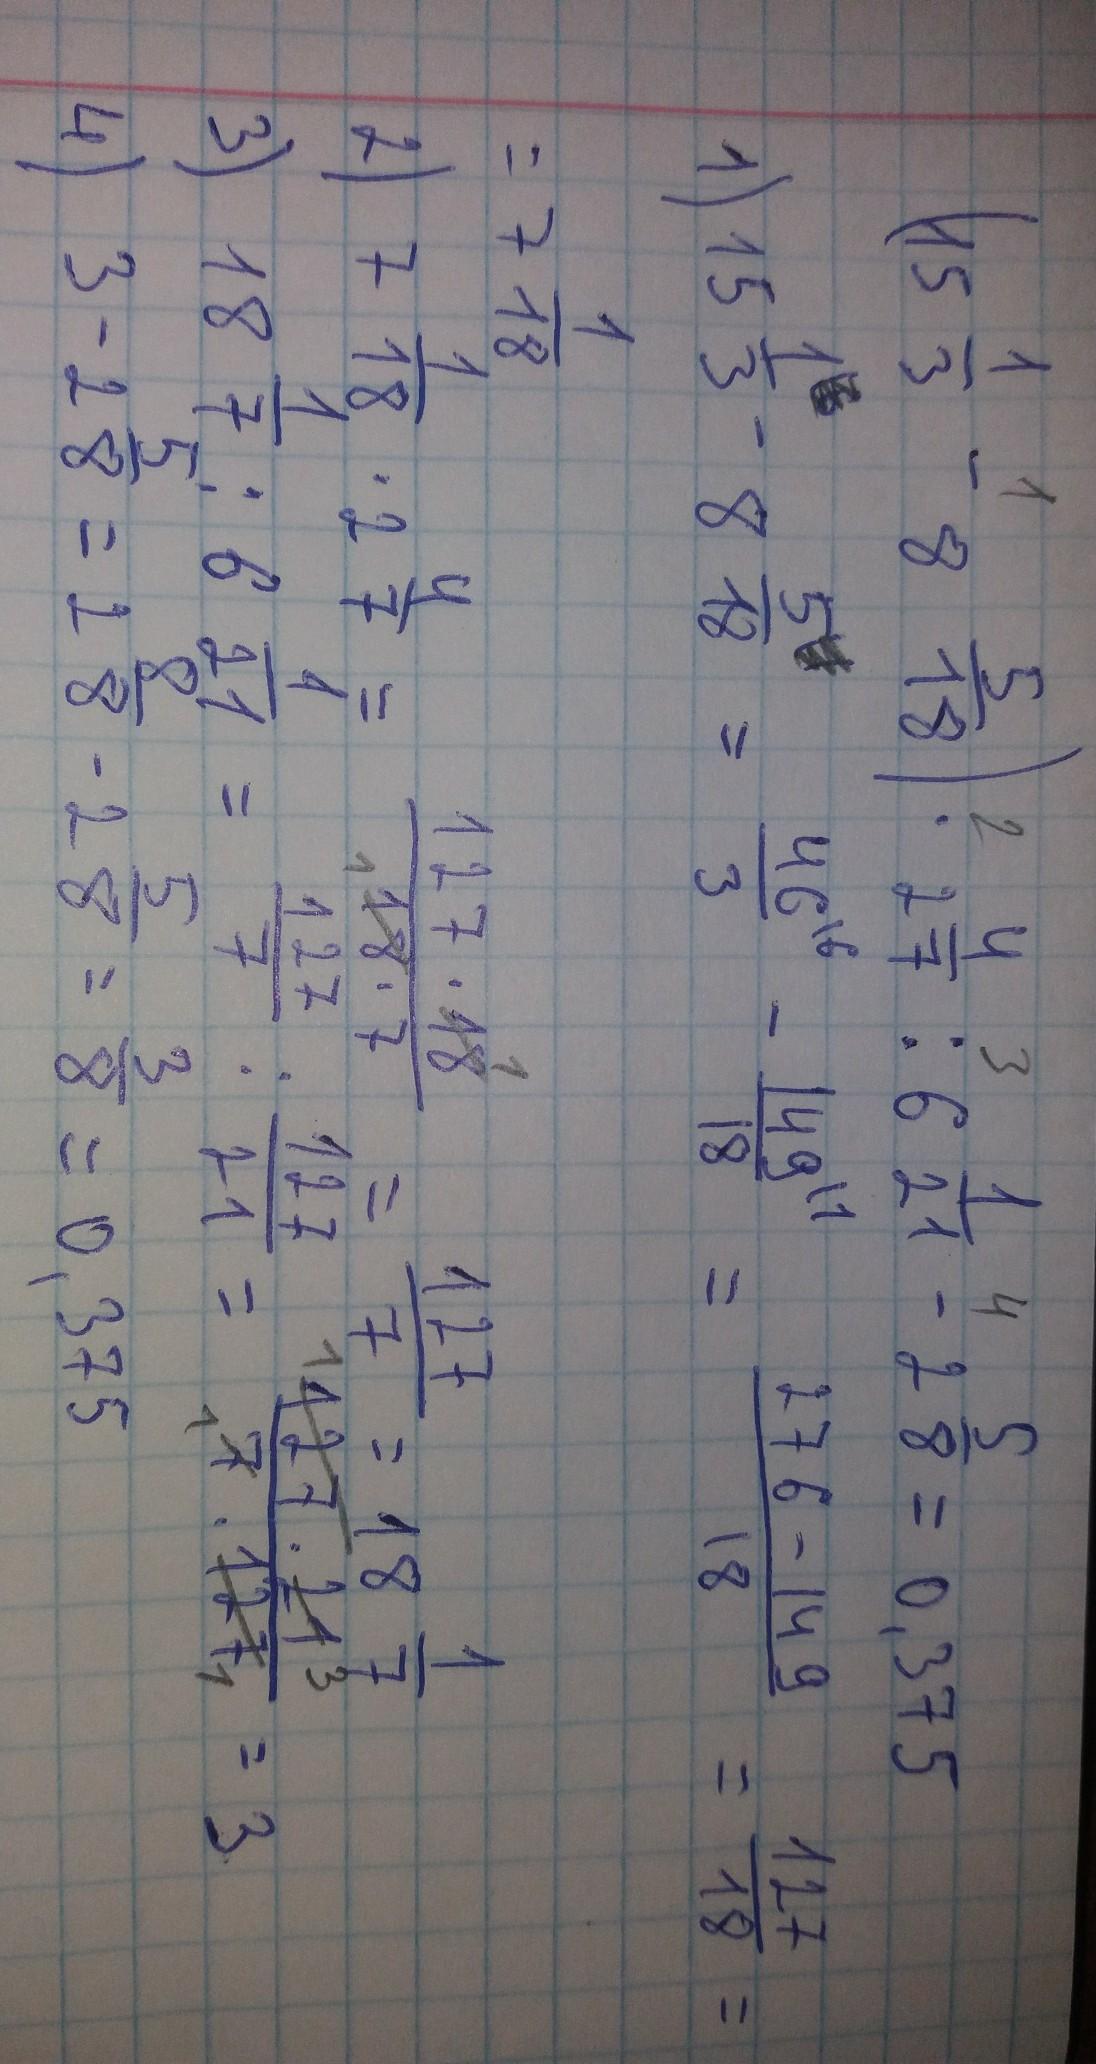 (15 1/3 - 8 5/18) · 2 4/7 : 6 1/21 - 2 5/8 = 0,375
1 2 3 4
1) 15 1/3 - 8 5/18 = 46/3 \6 - 149/18 \1 = 276-149/18 = 127/18 =
= 7 1/18
2) 7 1/18 · 2 4/7 = 127·18/18·7 = 127/7 = 18 1/7
3) 18 1/7 : 6 1/21 = 127/7 : 127/21 = 127·21/7·127 = 3
4) 3 - 2 5/8 = 2 8/8 - 2 5/8 = 3/8 = 0,375